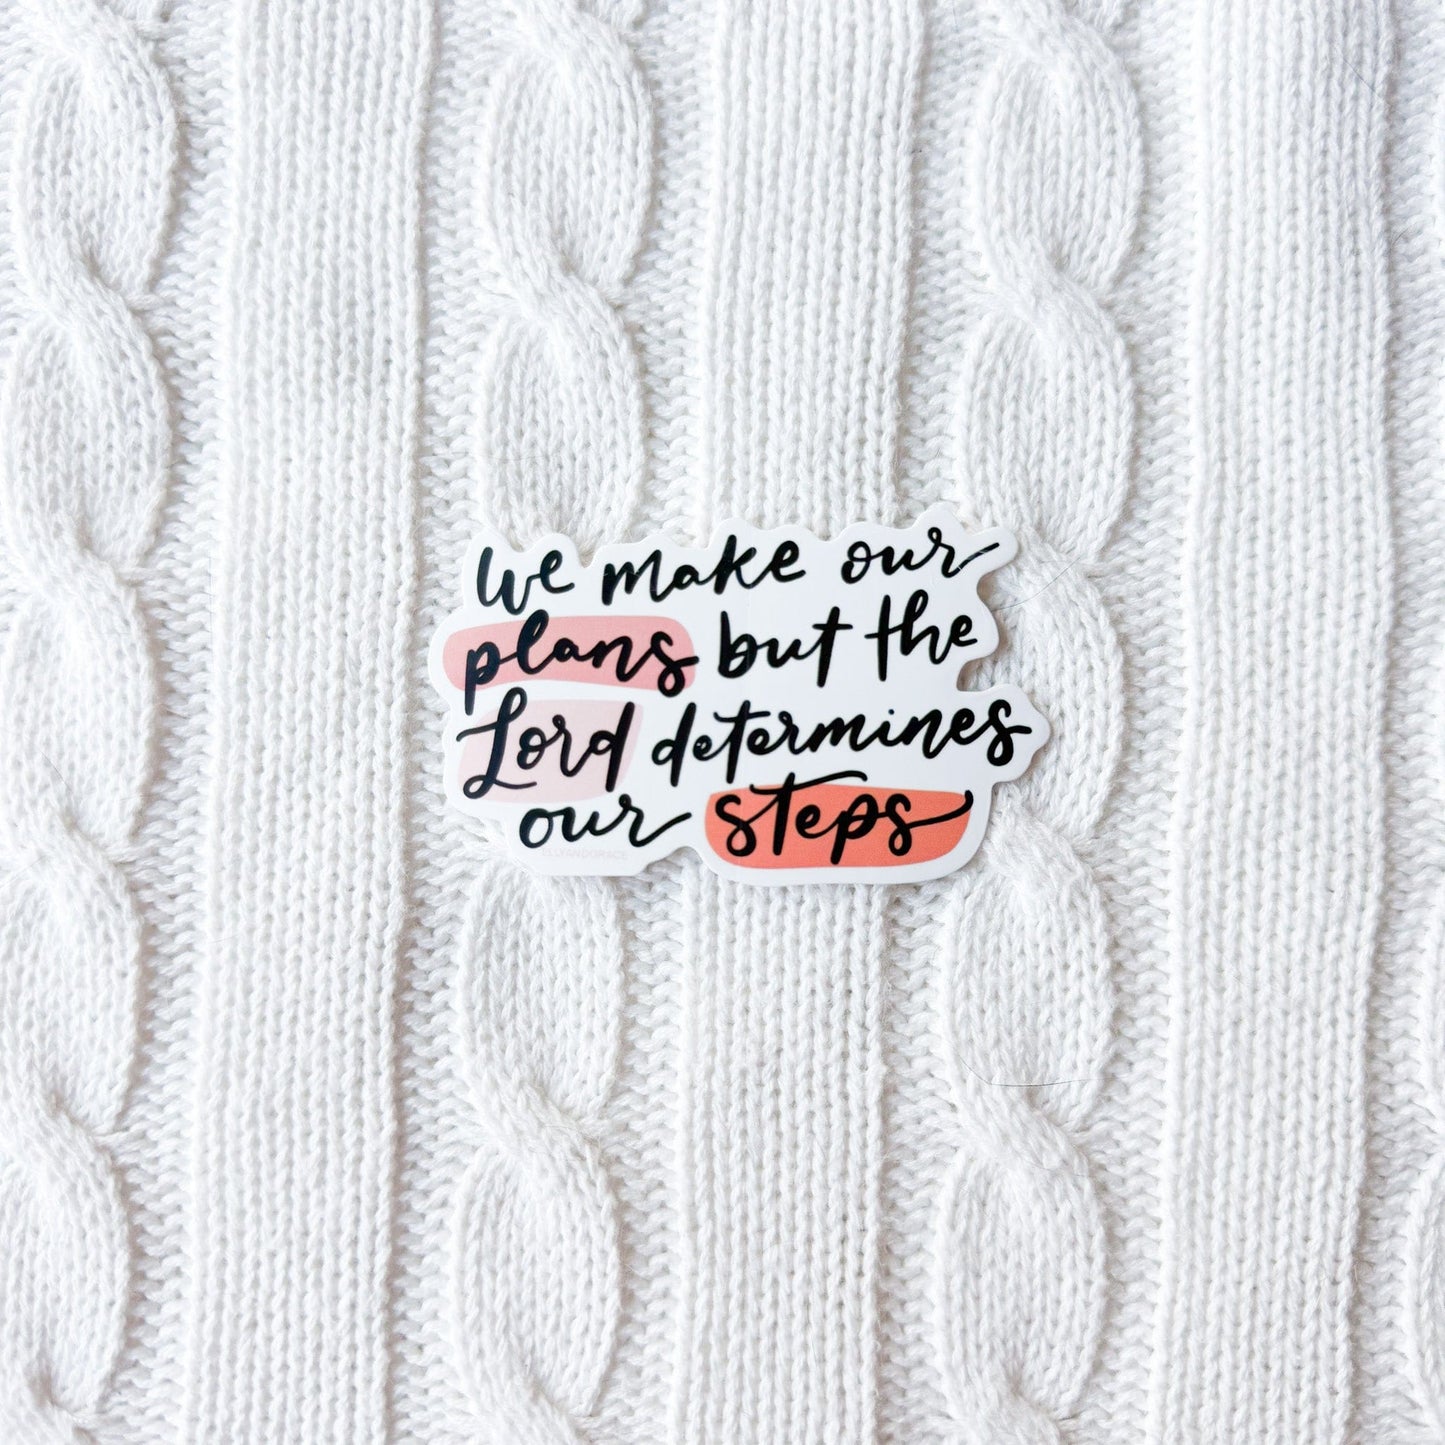 We make our
plans but the
Lord determines
our steps